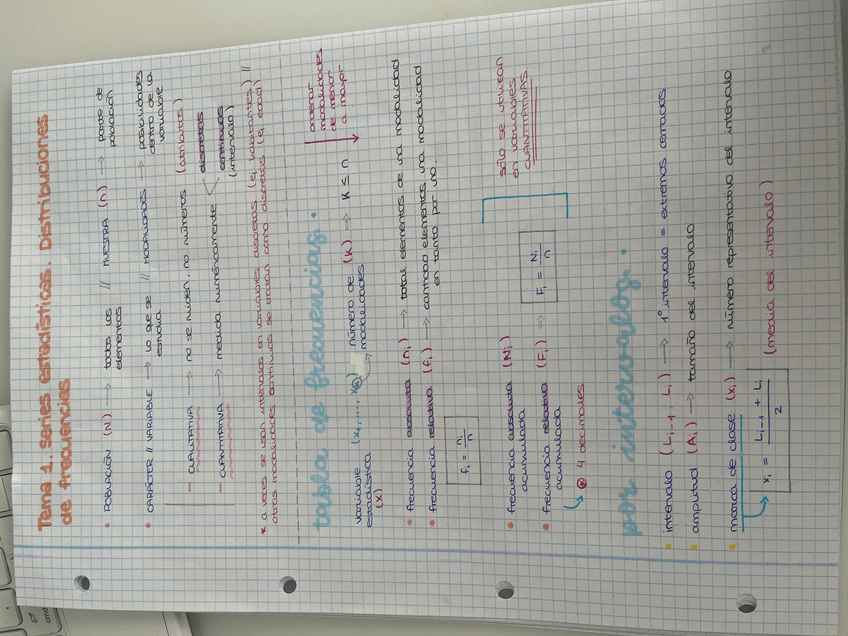 Tema 1. Series estadísticas. Distribuciones
de frecuencias
• POBLACIÓN (N) → todos los elementos // MUESTRA (n) → parte de población
• CARÁCTER // VARIABLE → lo que se estudia // MODALIDADES → posibilidades dentro de la variable
– CUALITATIVA → no se miden, no números (atributos)
– CUANTITATIVA → medida numéricamente < discretas
continuas
(intervalo)
* a veces se usan intervalos en variables discretas (ej, habitantes) //
otras modalidades continuas se tratan como discretas (ej, edad)
tabla de frecuencias.
ordenar
modalidades
de menor
a mayor
variable
estadística
(X)
(x1, ..., xk)
número de
modalidades
(K) ⇒ K ≤ n
• frecuencia absoluta (ni) → total elementos de una modalidad
• frecuencia relativa (fi) → cantidad elementos una modalidad
en tanto por uno.
fi = ni/n
• frecuencia absoluta (Ni)
acumulada
• frecuencia relativa (Fi) ⇒ Fi = Ni/n
acumulada
4 decimales
sólo se utilizan
en variables
CUANTITATIVAS
por intervalos.
• intervalo (Li-1, Li) → 1º intervalo = extremos cerrados
• amplitud (Ai) → tamaño del intervalo
• marca de clase (xi) → número representativo del intervalo
xi = Li-1 + Li / 2 (media del intervalo)